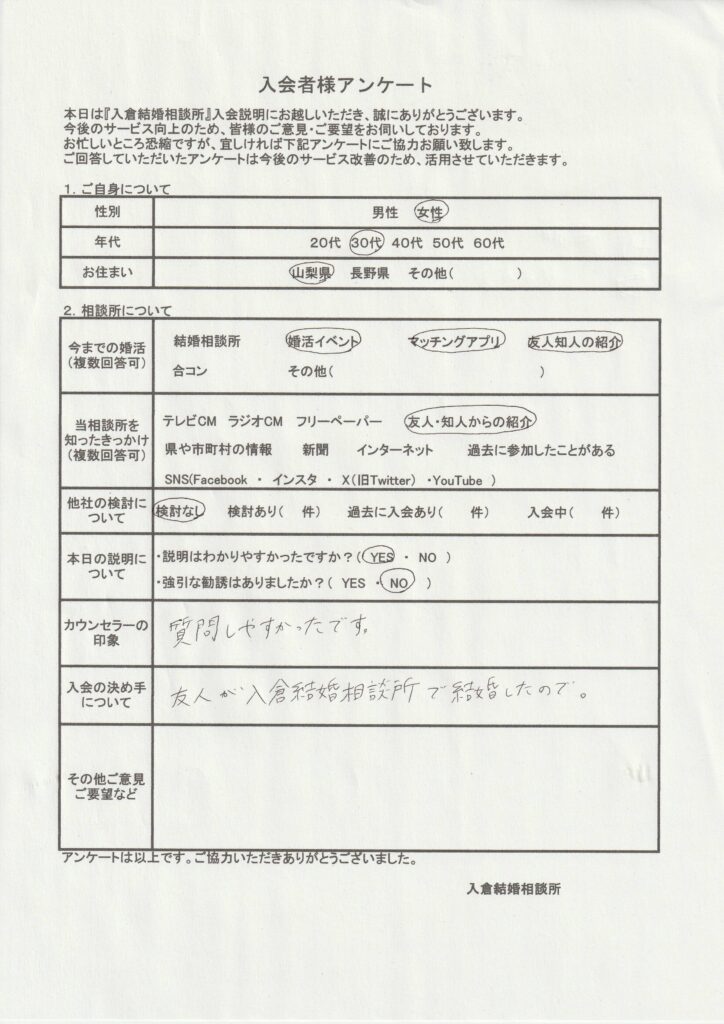 入会者様アンケート
本日は『入倉結婚相談所』入会説明にお越しいただき、誠にありがとうございます。
今後のサービス向上のため、皆様のご意見・ご要望をお伺いしております。
お忙しいところ恐縮ですが、宜しければ下記アンケートにご協力お願い致します。
ご回答していただいたアンケートは今後のサービス改善のため、活用させていただきます。
1. ご自身について
性別 男性 女性
年代 20代 30代 40代 50代 60代
お住まい 山梨県 長野県 その他( )
2. 相談所について
今までの婚活
(複数回答可)
結婚相談所 婚活イベント マッチングアプリ 友人知人の紹介
合コン その他( )
当相談所を
知ったきっかけ
(複数回答可)
テレビCM ラジオCM フリーペーパー 友人・知人からの紹介
県や市町村の情報 新聞 インターネット 過去に参加したことがある
SNS(Facebook ・ インスタ ・ X(旧Twitter) ・YouTube )
他社の検討に
ついて
検討なし 検討あり( 件) 過去に入会あり( 件) 入会中( 件)
本日の説明に
ついて
・説明はわかりやすかったですか?( YES ・ NO )
・強引な勧誘はありましたか?( YES ・ NO )
カウンセラーの
印象
質問しやすかったです。
入会の決め手
について
友人が入倉結婚相談所で結婚したので。
その他ご意見
ご要望など
アンケートは以上です。ご協力いただきありがとうございました。
入倉結婚相談所